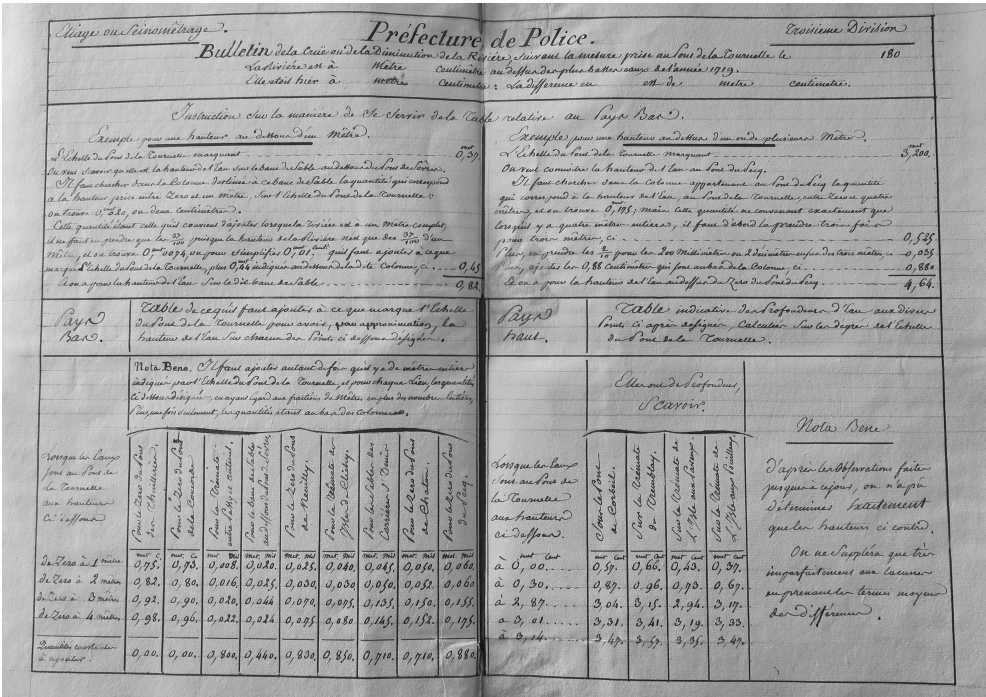 Etiage ou Seinomêtrage.
Préfecture de Police.
Troisieme Division
Bulletin de la Crüe ou de la Diminution de la Rivière, suivant la mesure prise au Pont de la Tournelle le 180
La Rivière est à Mêtre Centimètre au dessus des plus basses eaux de l'année 1719.
Elle étoit hier à metre Centimetre : La différence en est de metre centimetre.
Instruction sur la manière de se servir de la Table relative au Pays Bas.
Exemple, pour une hauteur au dessous d'un Mêtre.
L'Echelle du Pont de la Tournelle marquant 0,37
On veut savoir quelle est la hauteur de l'eau sur le banc de Sable au dessous du Pont de Sèvres.
Il faut chercher dans la Colonne destinée à ce banc de Sable la quantité qui correspond
à la hauteur prise entre Zero et un Mètre, sur l'Echelle du Pont de la Tournelle:
on trouve 0,020, ou deux centimètres.
Cette quantité étant celle qu'il convient d'ajouter lorsque la Rivière est à un Mêtre complet,
il ne faut en prendre que les 37/100 puisque la hauteur de la Rivière n'est que des 37/100 d'un
Mêtre, et on trouve 0,0074 ou pour simplifier 0,01: qu'il faut ajouter à ce que
marque l'Echelle du Pont de la Tournelle, plus 0,44 indiqué au dessous de la dite Colonne, ci 0,45
Et on a pour la hauteur de l'eau sur le dit banc de Sable 0,82.
Exemple pour une hauteur au dessus d'un ou de plusieurs Mêtres.
L'Echelle du Pont de la Tournelle marquant 3,200.
On veut connoitre la hauteur de l'eau au Pont du Pecq.
Il faut chercher dans la Colonne appartenant au Pont du Pecq la quantité
qui correspond à la hauteur de l'eau, au Pont de la Tournelle, entre Zero et quatre
mêtres, et on trouve 0,175; mais cette quantité ne convenant exactement que
lorsqu'il y a quatre mêtres entiers, il faut d'abord la prendre trois fois
pour trois mêtres, ci 0,525
Plus, en prendre les 2/10 pour les 200 Millimêtres ou 2 décimêtres en sus des trois metres ci 0,035
Plus, ajouter les 0,88 Centimêtres qui sont au bas de la Colonne ci 0,880
Et on a pour la hauteur de l'eau au dessus du Zero du Pont du Pecq 4,64.
Pays Bas.
Table de ce qu'il faut ajouter à ce que marque l'Echelle
du Pont de la Tournelle pour avoir, par approximation, la
hauteur de l'eau sur chacun des Points ci dessous désignés.
Pays haut.
Table indicative des Profondeurs d'Eau aux divers
Points ci après désignés, calculées sur les degrés de l'Echelle
du Pont de la Tournelle.
Nota Bene. Il faut ajouter autant de fois qu'il y a de mêtres entiers
indiqués par l'Echelle du Pont de la Tournelle, et pour chaque Lieu, les quantités
ci dessous désignées, en ayant égard aux fractions de Mêtres, en plus des nombres Entiers,
Plus une fois seulement, les quantités étant au bas des colonnes.
Lorsque les Eaux
sont au Pont de
la Tournelle
aux hauteurs
ci dessous
Pour le Zero du Pont des Thuilleries
Pour le Zero du Pont de la Concorde
Pour le Trémate entre Issy et Auteuil.
Pour le banc de Sable au dessous du Pont de Sèvres
Pour le Zero du Pont de Neuilly.
Pour le Trémate de l'Isle de Clichy.
Pour les Echos des Carrières St Denis
Pour le Zero du Pont de Chatou.
Pour le Zero du Pont du Pecq.
met. c. met. c. met. Mil met. Mil met. Mil met. Mil met. Mil met. Mil met. Mil.
de Zero à 1 mètre 0,75. 0,73. 0,008. 0,020. 0,025. 0,040. 0,045. 0,050. 0,060.
de Zero à 2 metres 0,82. 0,80. 0,016. 0,025. 0,030. 0,030. 0,050. 0,052. 0,060
de Zero à 3 mètres 0,92. 0,90. 0,020. 0,044 0,070. 0,075. 0,135. 0,150. 0,155.
de Zero à 4 mètres 0,98. 0,96. 0,022. 0,024 0,075. 0,080 0,145. 0,152. 0,175.
Quantités constantes
à ajouter. 0,00. 0,00. 0,800. 0,440. 0,830. 0,850. 0,710. 0,710. 0,880.
Elles ont de Profondeur,
Scavoir.
Lorsque les Eaux
sont au Pont de
la Tournelle
aux hauteurs
ci dessous.
Sous le Pont de Corbeil.
Sur le Trémate du Tremblay.
Sur le Trémate de
Sur le Trémate de
met Cent met Cent met Cent met Cent met Cent
à 0,00. 0,57. 0,66. 0,43. 0,37.
à 0,30. 0,87. 0,96. 0,73. 0,67.
à 2,87. 3,04. 3,15. 2,94. 3,17.
à 3,01. 3,31. 3,41. 3,19. 3,33.
à 3,14. 3,47. 3,57. 3,35. 3,47.
Nota Bene
D'après les Observations faites
jusques à ce jour, on n'a pû
déterminer Exactement
que les hauteurs ci contre.
On ne Suppléra que très
imparfaitement aux lacunes
en prenant les termes moyens
des différences